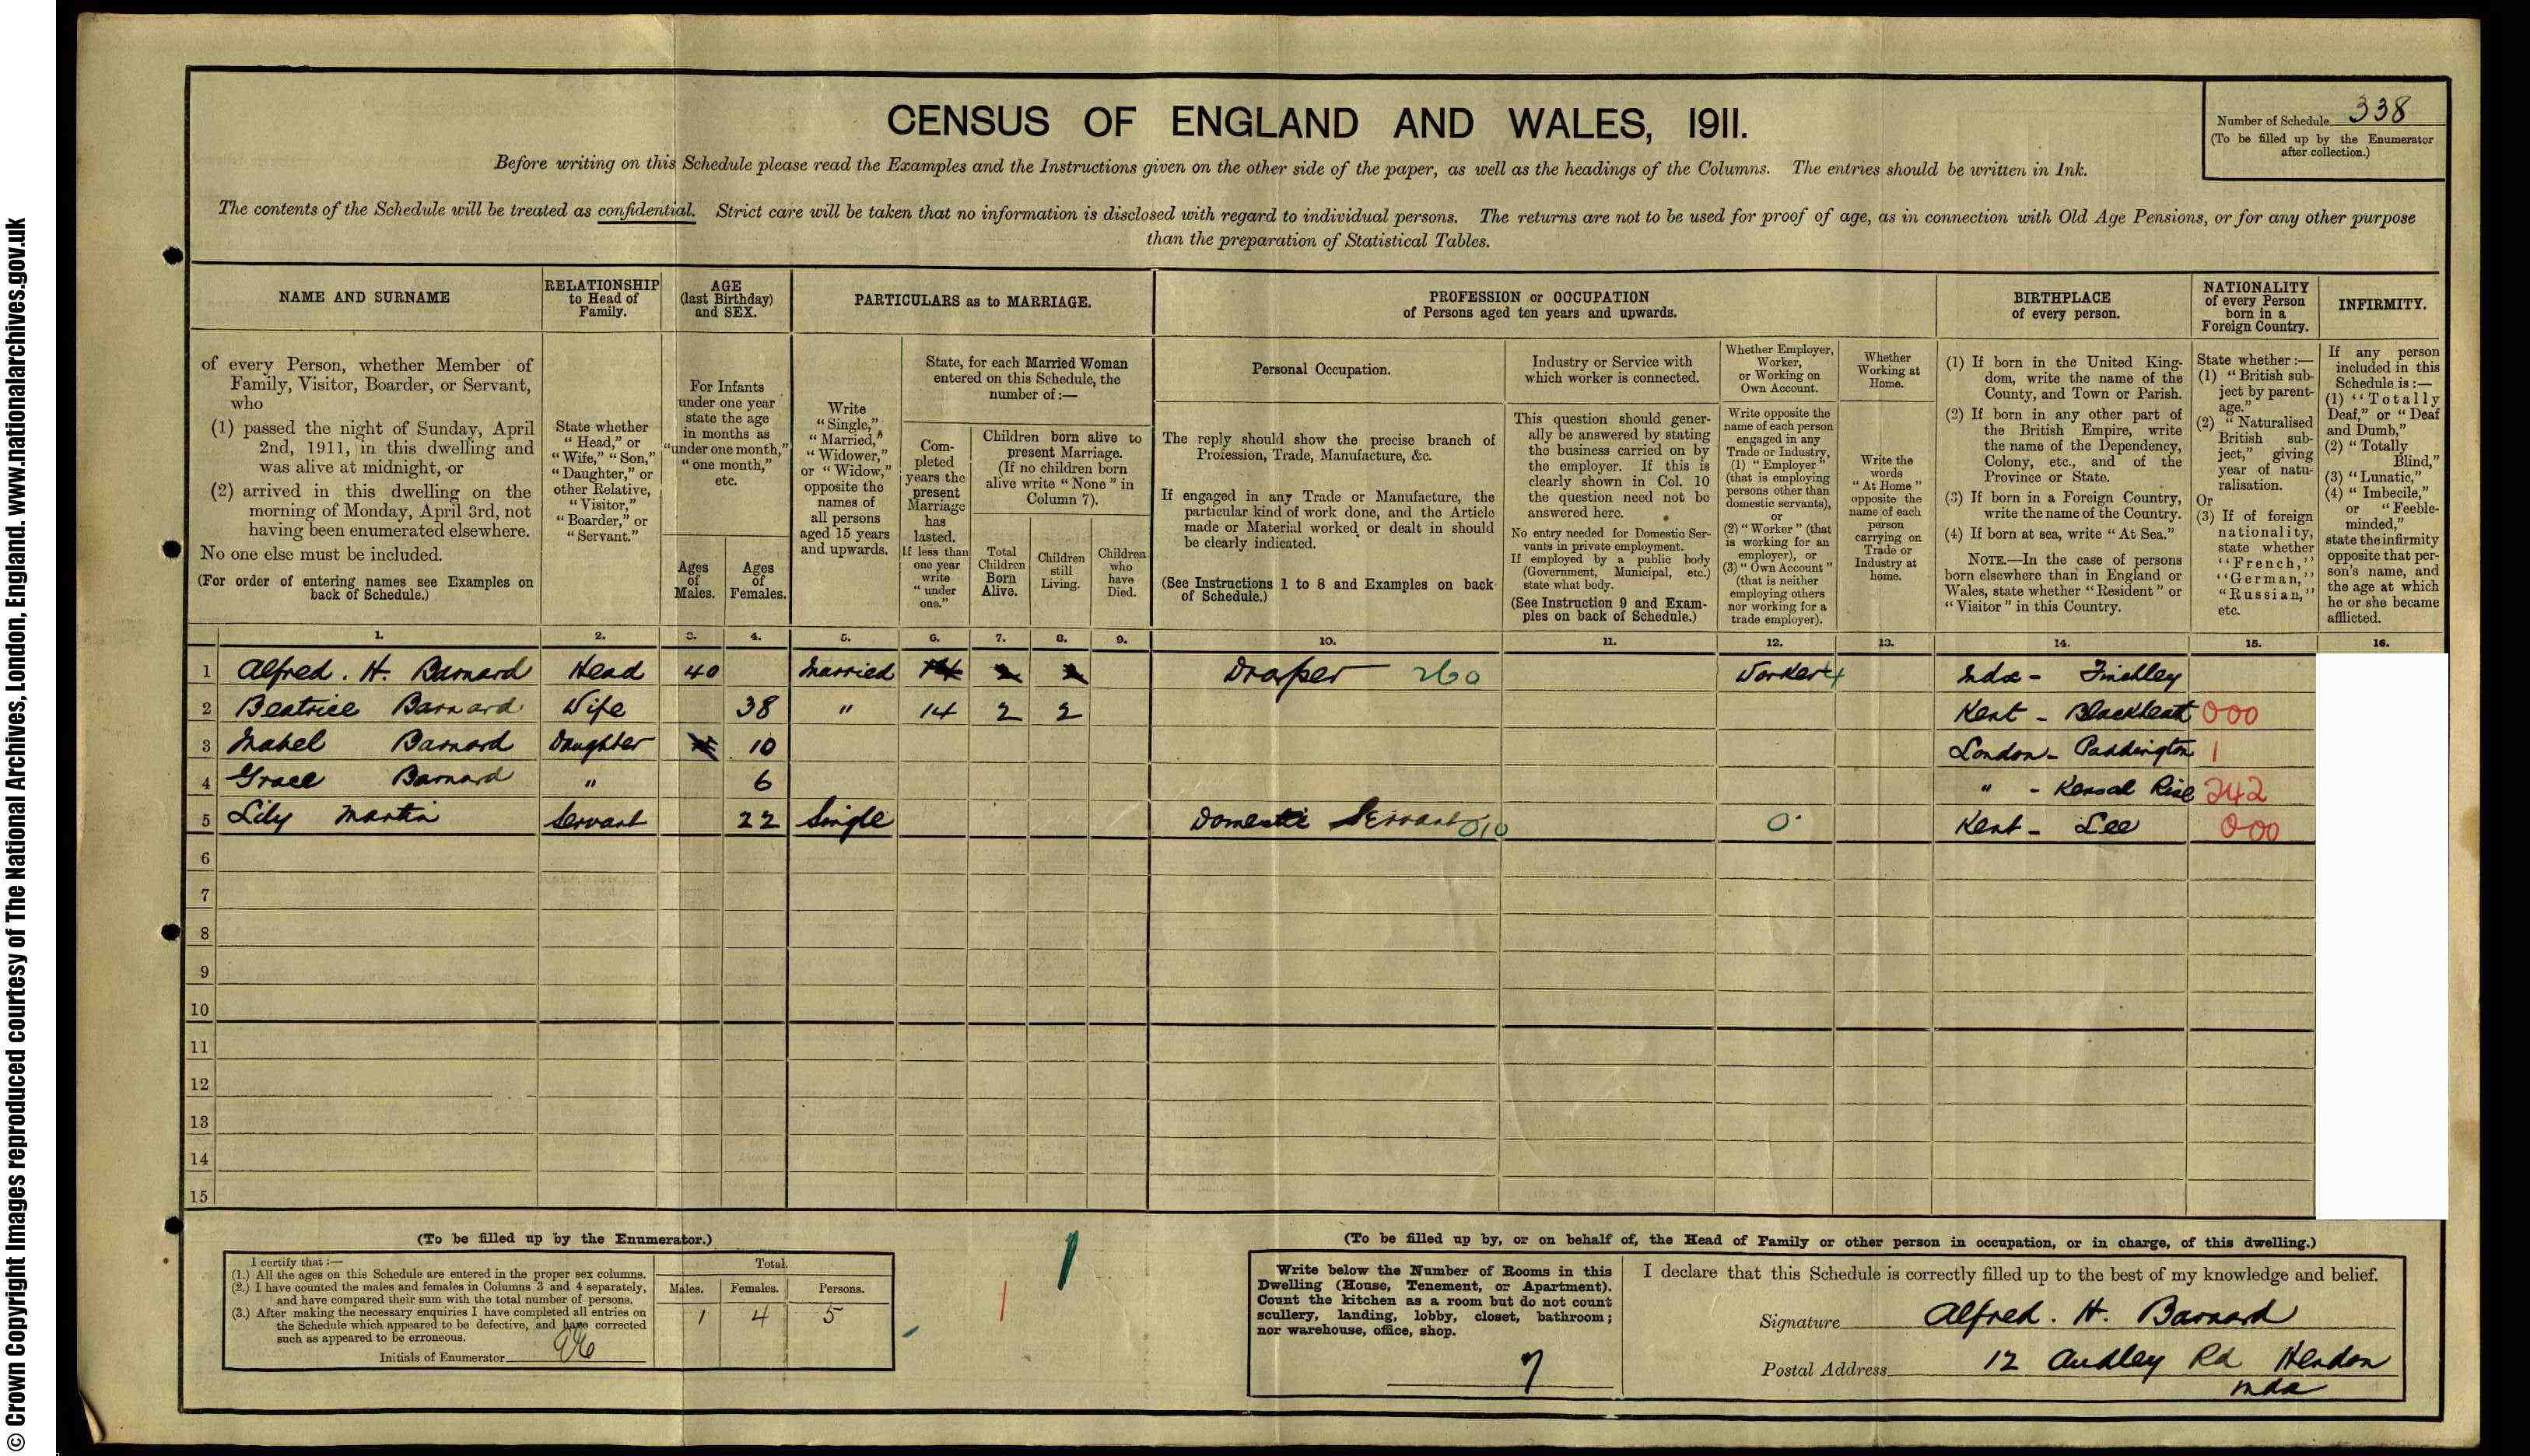 © Crown Copyright Images reproduced courtesy of The National Archives, London, England. www.nationalarchives.gov.uk
CENSUS OF ENGLAND AND WALES, 1911.
Number of Schedule 338
(To be filled up by the Enumerator
after collection.)
Before writing on this Schedule please read the Examples and the Instructions given on the other side of the paper, as well as the headings of the Columns. The entries should be written in Ink.
The contents of the Schedule will be treated as confidential. Strict care will be taken that no information is disclosed with regard to individual persons. The returns are not to be used for proof of age, as in connection with Old Age Pensions, or for any other purpose
than the preparation of Statistical Tables.
NAME AND SURNAME
of every Person, whether Member of
Family, Visitor, Boarder, or Servant,
who
(1) passed the night of Sunday, April
2nd, 1911, in this dwelling and
was alive at midnight, or
(2) arrived in this dwelling on the
morning of Monday, April 3rd, not
having been enumerated elsewhere.
No one else must be included.
(For order of entering names see Examples on
back of Schedule.)
RELATIONSHIP
to Head of
Family.
State whether
"Head," or
"Wife," "Son,"
"Daughter," or
other Relative,
"Visitor,"
"Boarder," or
"Servant."
AGE
(last Birthday)
and SEX.
For Infants
under one year
state the age
in months as
"under one month,"
"one month,"
etc.
Ages
of
Males.
Ages
of
Females.
PARTICULARS as to MARRIAGE.
Write
"Single,"
"Married,"
"Widower,"
or "Widow,"
opposite the
names of
all persons
aged 15 years
and upwards.
State, for each Married Woman
entered on this Schedule, the
number of:—
Com-
pleted
years the
present
Marriage
has
lasted.
If less than
one year
write
"under
one."
Children born alive to
present Marriage.
(If no children born
alive write "None" in
Column 7).
Total
Children
Born
Alive.
Children
still
Living.
Children
who
have
Died.
PROFESSION or OCCUPATION
of Persons aged ten years and upwards.
Personal Occupation.
The reply should show the precise branch of
Profession, Trade, Manufacture, &c.
If engaged in any Trade or Manufacture, the
particular kind of work done, and the Article
made or Material worked or dealt in should
be clearly indicated.
(See Instructions 1 to 8 and Examples on back
of Schedule.)
Industry or Service with
which worker is connected.
This question should gener-
ally be answered by stating
the business carried on by
the employer. If this is
clearly shown in Col. 10
the question need not be
answered here.
No entry needed for Domestic Ser-
vants in private employment.
If employed by a public body
(Government, Municipal, etc.)
state what body.
(See Instruction 9 and Exam-
ples on back of Schedule.)
Whether Employer,
Worker,
or Working on
Own Account.
Write opposite the
name of each person
engaged in any
Trade or Industry,
(1) "Employer"
(that is employing
persons other than
domestic servants),
or
(2) "Worker" (that
is working for an
employer), or
(3) "Own Account"
(that is neither
employing others
nor working for a
trade employer).
Whether
Working at
Home.
Write the
words
"At Home"
opposite the
name of each
person
carrying on
Trade or
Industry at
home.
BIRTHPLACE
of every person.
(1) If born in the United King-
dom, write the name of the
County, and Town or Parish.
(2) If born in any other part of
the British Empire, write
the name of the Dependency,
Colony, etc., and of the
Province or State.
(3) If born in a Foreign Country,
write the name of the Country.
(4) If born at sea, write "At Sea."
NOTE.—In the case of persons
born elsewhere than in England or
Wales, state whether "Resident" or
"Visitor" in this Country.
NATIONALITY
of every Person
born in a
Foreign Country.
State whether:—
(1) "British sub-
ject by parent-
age."
(2) "Naturalised
British sub-
ject," giving
year of natu-
ralisation.
Or
(3) If of foreign
nationality,
state whether
"French,"
"German,"
"Russian,"
etc.
INFIRMITY.
If any person
included in this
Schedule is:—
(1) "Totally
Deaf," or "Deaf
and Dumb,"
(2) "Totally
Blind,"
(3) "Lunatic,"
(4) "Imbecile,"
or "Feeble-
minded,"
state the infirmity
opposite that per-
son's name, and
the age at which
he or she became
afflicted.
1. 2. 3. 4. 5. 6. 7. 8. 9. 10. 11. 12. 13. 14. 15. 16.
1 Alfred. H. Barnard Head 40 Married 14 2 2 Draper 260 Worker 4 Mdx - Finchley
2 Beatrice Barnard Wife 38 " 14 2 2 Kent - Blackheath 000
3 Mabel Barnard Daughter 10 London - Paddington 1
4 Grace Barnard " 6 " - Kensal Rise 242
5 Lily Martin Servant 22 Single Domestic Servant 010 0 Kent - Lee 000
6
7
8
9
10
11
12
13
14
15
(To be filled up by the Enumerator.)
I certify that:—
(1.) All the ages on this Schedule are entered in the proper sex columns.
(2.) I have counted the males and females in Columns 3 and 4 separately,
and have compared their sum with the total number of persons.
(3.) After making the necessary enquiries I have completed all entries on
the Schedule which appeared to be defective, and have corrected
such as appeared to be erroneous.
Initials of Enumerator
Total.
Males. Females. Persons.
1 4 5
1
1
(To be filled up by, or on behalf of, the Head of Family or other person in occupation, or in charge, of this dwelling.)
Write below the Number of Rooms in this
Dwelling (House, Tenement, or Apartment).
Count the kitchen as a room but do not count
scullery, landing, lobby, closet, bathroom;
nor warehouse, office, shop.
7
I declare that this Schedule is correctly filled up to the best of my knowledge and belief.
Signature Alfred. H. Barnard
Postal Address 12 Audley Rd Hendon
Mdx